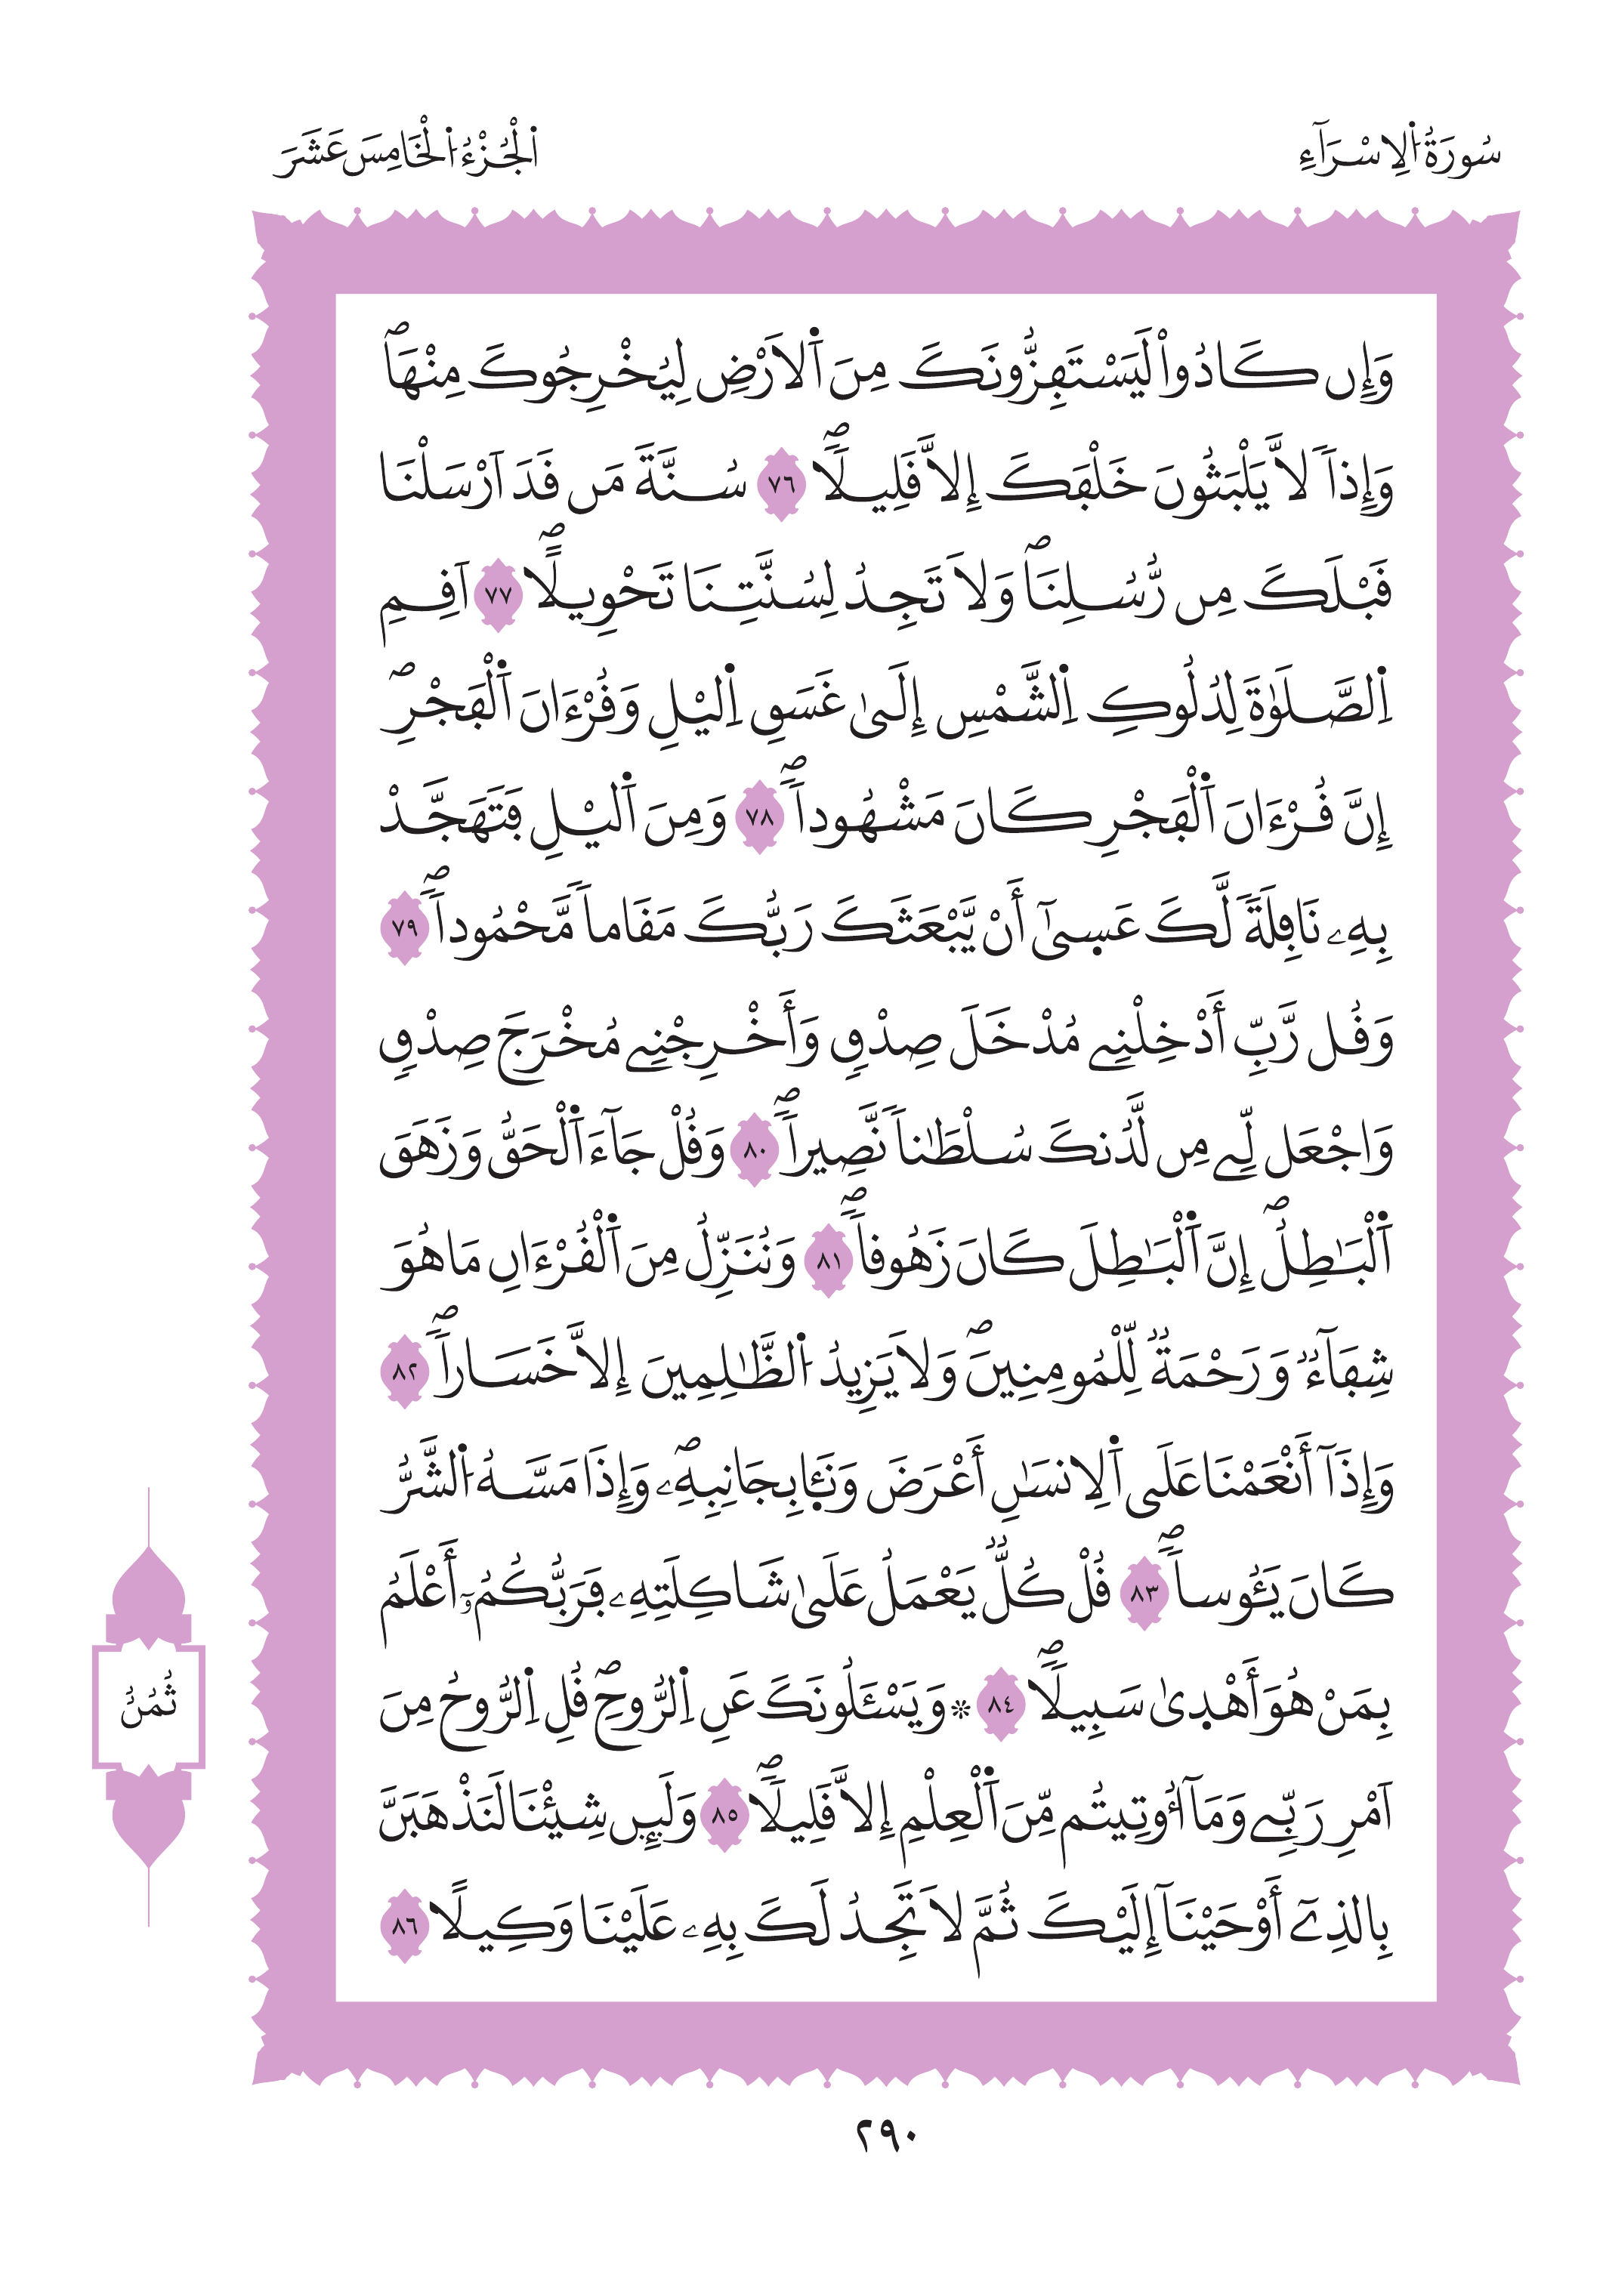 سُورَةُ اُ۬لِاسْرَآءِ
اَ۬لْجُزْءُ اُ۬لْخَامِسَ عَشَرَ
وَإِن كَادُواْ لَيَسْتَفِزُّونَكَ مِنَ اَ۬لَارْضِ لِيُخْرِجُوكَ مِنْهَاۖ
وَإِذاٗ لَّا يَلْبَثُونَ خَلْفَكَ إِلَّا قَلِيلاٗۖ ٧٦ سُنَّةَ مَن قَدَ اَرْسَلْنَا
قَبْلَكَ مِن رُّسُلِنَاۖ وَلَا تَجِدُ لِسُنَّتِنَا تَحْوِيلاًۖ ٧٧ اَقِمِ
اِ۬لصَّلَوٰةَ لِدُلُوكِ اِ۬لشَّمْسِ إِلَىٰ غَسَقِ اِ۬ليْلِ وَقُرْءَانَ اَ۬لْفَجْرِۖ
إِنَّ قُرْءَانَ اَ۬لْفَجْرِ كَانَ مَشْهُوداٗۖ ٧٨ وَمِنَ اَ۬ليْلِ فَتَهَجَّدْ
بِهِۦ نَافِلَةٗ لَّكَ عَسٜىٰٓ أَنْ يَّبْعَثَكَ رَبُّكَ مَقَاماٗ مَّحْمُوداٗۖ ٧٩
وَقُل رَّبِّ أَدْخِلْنِے مُدْخَلَ صِدْقٖ وَأَخْرِجْنِے مُخْرَجَ صِدْقٖ
وَاجْعَل لِّے مِن لَّدُنكَ سُلْطَٰناٗ نَّصِيراٗۖ ٨٠ وَقُلْ جَآءَ اَ۬لْحَقُّ وَزَهَقَ
اَ۬لْبَٰطِلُۖ إِنَّ اَ۬لْبَٰطِلَ كَانَ زَهُوقاٗۖ ٨١ وَنُنَزِّلُ مِنَ اَ۬لْقُرْءَانِ مَا هُوَ
شِفَآءٞ وَرَحْمَةٞ لِّلْمُومِنِينَۖ وَلَا يَزِيدُ اُ۬لظَّٰلِمِينَ إِلَّا خَسَاراٗۖ ٨٢
وَإِذَآ أَنْعَمْنَا عَلَى اَ۬لِانسَٰنِ أَعْرَضَ وَنَـَٔا بِجَانِبِهِۦۖ وَإِذَا مَسَّهُ اُ۬لشَّرُّ
كَانَ يَـُٔوساٗۖ ٨٣ قُلْ كُلّٞ يَعْمَلُ عَلَىٰ شَاكِلَتِهِۦ فَرَبُّكُمُۥٓ أَعْلَمُ
بِمَنْ هُوَ أَهْدٜىٰ سَبِيلاٗۖ ٨٤ ۞ وَيَسْـَٔلُونَكَ عَنِ اِ۬لرُّوحِۖ قُلِ اِ۬لرُّوحُ مِنَ
اَمْرِ رَبِّے وَمَآ أُوتِيتُم مِّنَ اَ۬لْعِلْمِ إِلَّا قَلِيلاٗۖ ٨٥ وَلَئِن شِئْنَا لَنَذْهَبَنَّ
بِالذِےٓ أَوْحَيْنَآ إِلَيْكَ ثُمَّ لَا تَجِدُ لَكَ بِهِۦ عَلَيْنَا وَكِيلاً ٨٦
ثُمُنُ
٢٩٠